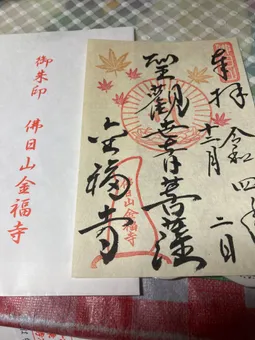 奉拝
令和四年
十二月 二日
聖観世音菩薩
金福寺
佛日山金福寺
御朱印 佛日山金福寺